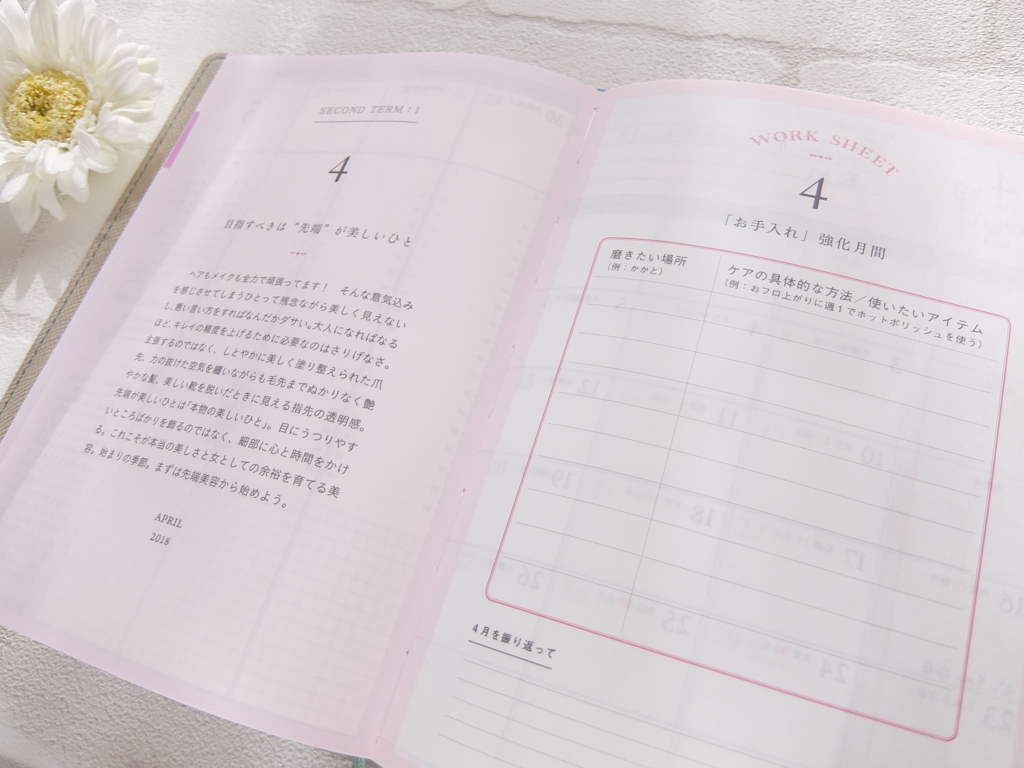 SECOND TERM : I
4
目指すべきは “先端” が美しいひと
ヘアもメイクも全力で頑張ってます！ そんな意気込み
を感じさせてしまうひとって残念ながら美しく見えない
し、悪い言い方をすればなんだかダサい。大人になればなる
ほど、キレイの精度を上げるために必要なのはさりげなさ。
主張するのではなく、しとやかに美しく塗り整えられた爪
先、力の抜けた空気を纏いながらも毛先までぬかりなく艶
やかな髪、美しい靴を脱いだときに見える指先の透明感。
先端が美しいひとは「本物の美しいひと」。目にうつりやす
いところばかりを飾るのではなく、細部に心と時間をかけ
る。これこそが本当の美しさと女としての余裕を育てる美
容。始まりの季節。まずは先端美容から始めよう。
APRIL
2018
WORK SHEET
4
「お手入れ」強化月間
磨きたい場所
（例：かかと）
ケアの具体的な方法／使いたいアイテム
（例：おフロ上がりに週1でホットポリッシュを使う）
4月を振り返って
5
4
3
12
11
10
19
18
17
16
26
25
24
23
30